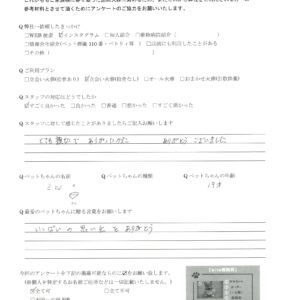 参考材料とさせて頂くためにアンケートのご協力をお願いいたします。
Q 弊社へ依頼したきっかけ?
□WEB検索 ☑インスタグラム □知人紹介 □動物病院紹介(
□情報会社紹介(ペット葬儀110番・ペトリィ等 ) □以前にも利用したことがある
□その他(
Q ご利用プラン
□立会い火葬(拾骨あり) ☑立会い火葬(拾骨なし) □オール火葬 □おまかせ火葬(引取供養)
Q スタッフの対応はどうでしたか
☑すごく良かった □良かった □普通 □悪かった □すごく悪かった
Q スタッフに対して感じたことがありましたらご記入お願いします
とても親切で ありがたかった ありがとう ございました
Q ペットちゃんの名前 Q ペットちゃんの種類 Q ペットちゃんの年齢
ミロ 19才
Q 最愛のペットちゃんに贈る言葉をお願いします
いっぱいの思い出をありがとう
今回のアンケートを下記の掲載可能なものに☑をお願い致します。
(個人を特定するお名前ご住所などは一切記載いたしません。)
☑全て可 □全て不可